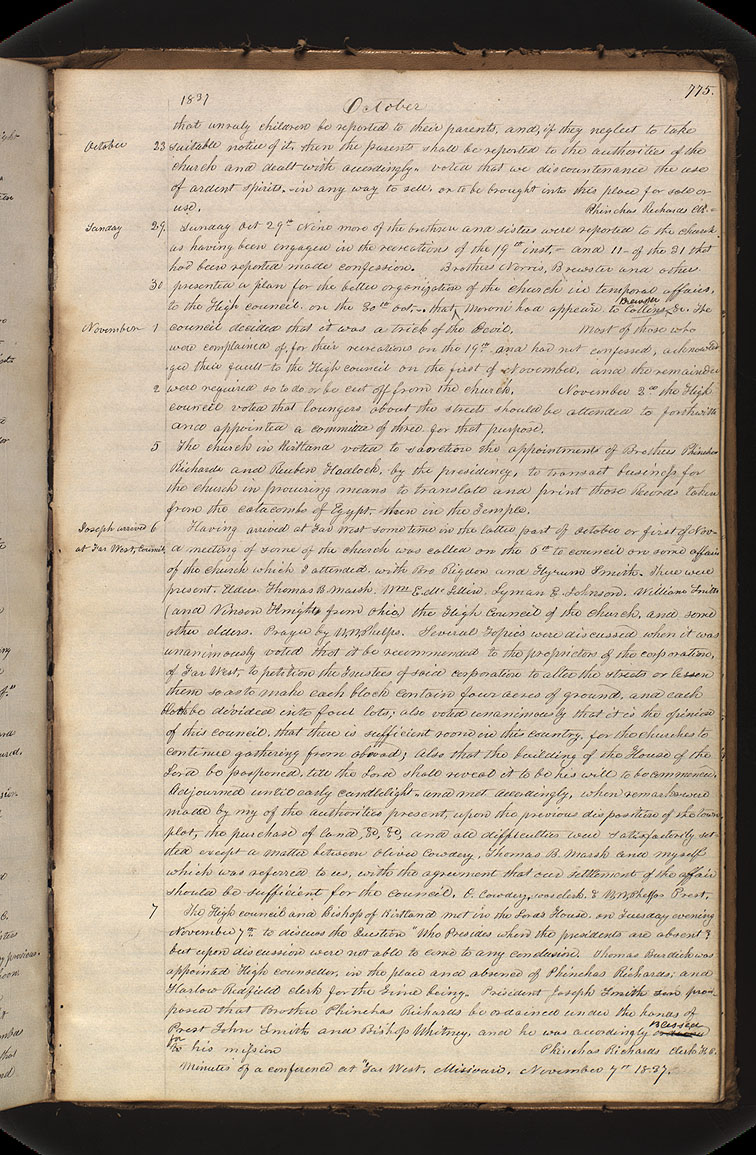 1837 October 775.
that unruly children be reported to their parents, and, if they neglect to take
October 23 suitable notice of it, then the parents shall be reported to the authorities of the
church and dealt with accordingly. voted that we discountenance the use
of ardent spirits, in any way to sell, or to be brought into this place for sale or
use. Phinehas Richards Clk.
Sunday 29. Sunday Oct 29th Nine more of the brethren and sisters were reported to the church,
as having been engaged in the recreations of the 19th inst,— and 11— of the 31 that
had been reported made confession. Brothers Norris, Brewster and others
30 presented a plan for the better organization of the church in temporal affairs,
to the High council, on the 30th Oct., that, Moroni had appeared to Brewster Collins, &c. The
November 1 council decided that it was a trick of the Devil. Most of those who
were complained of, for their recreations on the 19th and had not confessed, acknowled
-ged their fault to the High council on the first of November, and the remainder
2 were required so to do or be cut off from the church. November 2nd the High
council voted that loungers about the streets should be attended to forthwith
and appointed a committee of three for that purpose.
5 The church in Kirtland voted to sanction the appointments of Brothers Phinehas
Richards and Reuben Hadlock, by the presidency, to transact business for
the church in procuring means to translate and print those Records taken
from the catacombs of Egypt, then in the Temple.
Joseph arrived 6 Having arrived at Far West some time in the latter part of October or first of Nov-
at Far West, Council, a meeting of some of the church was called on the 6th to council on some affairs
of the church which I attended, with Bro Rigdon and Hyrum Smith. There were
present, Elders Thomas B. Marsh, Wm E. Lyman E. Johnson, William Smith
(and Vinson Knight from Ohio) the High Council of the church, and some
other elders. Prayer by W. W. Phelps. Several Topics were discussed when it was
unanimously voted that it be recommended to the proprietors of the corporation,
of Far West, to petition the Trustees of said corporation to alter the streets or lessen
them so as to make each block contain four acres of ground, and each
block be divided into four lots; also voted unanimously that it is the opinion
of this council, that there is sufficient room in this country, for the churches to
continue gathering from abroad; Also that the building of the House of the
Lord be postponed till the Lord shall reveal it to be his will to be commenced.
Adjourned until early candlelight— and met accordingly, when remarks were
made by my of the authorities present, upon the previous disposition of the town
plot, the purchase of land, &c, &c, and all difficulties were satisfactorily set-
tled except a matter between Oliver Cowdery, Thomas B. Marsh and myself
which was referred to us, with the agreement that our settlement of the affair
should be sufficient for the council. O. Cowdery, was clerk. & W. W. Phelps Prest.
7 The High council and bishops of Kirtland met in the Lords House, on Tuesday evening
November 7th to discuss the Question "Who Presides when the presidents are absent?
but upon discussion were not able to come to any conclusion. Thomas Burdick was
appointed High counsellor, in the place and absence of Phinehas Richards; and
Harlow Redfield clerk for the time being. President Joseph Smith sen pro-
posed that Brother Phinehas Richards be ordained under the hands of
Prest John Smith and Bishop Whitney, and he was accordingly Blessed
for to his mission Phinehas Richards clerk H. C.
Minutes of a conference at Far West, Missouri, November 7th 1837.